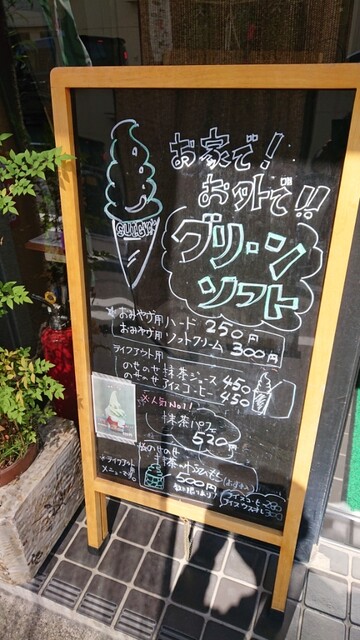 お家で!
お外で!!
グリーン
ソフト
おみやげ用 ハード 250円
おみやげ用 ソフトクリーム 300円
テイクアウト用
のせのせ 抹茶ジュース 450
のせのせ アイスコーヒー 450
※人気No1!
抹茶パフェ
520円
500円
※テイクアウト
メニューです。
アイスコーヒー